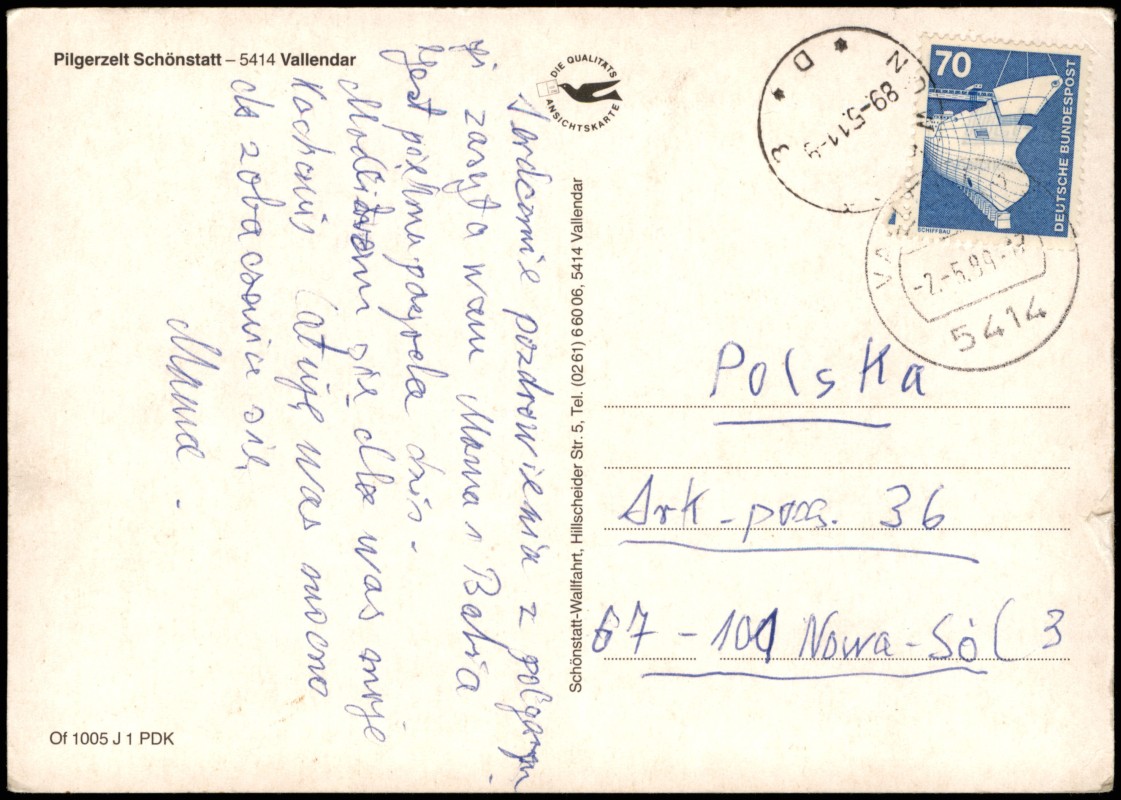 Pilgerzelt Schönstatt – 5414 Vallendar
DIE QUALITÄTS
ANSICHTSKARTE
Serdecznie pozdrowienia z
zasyła wam Mama i Babcia
jest piękna pogoda dziś.
się dla was moje
Kochani Całuję was mocno
do zobaczenia się
Mama.
Schönstatt-Wallfahrt, Hillscheider Str. 5, Tel. (02 61) 6 60 06, 5414 Vallendar
Of 1005 J 1 PDK
70
DEUTSCHE BUNDESPOST
SCHIFFBAU
89.-5.11-9
3 * D *
-2.-5.89
5414
Polska
Ark-poza. 36
67-101 Nowa-Sól 3